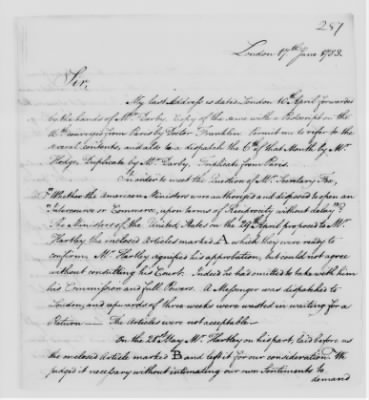 287
London 17th June 1783.
Sir,
My last Address is dated London 10th April forwarded
by the hands of Mr. Darby. Copy of the same with a Postscript on the
conveyed from Paris by Doctor Franklin. Permit me to refer to the
several Contents, and also to a dispatch the 6th of that Month by Mr.
Hodge, Duplicate by Mr. Darby, Triplicate from Paris.
In order to meet the Question of Mr. Secretary Fox,
"Whether the American Ministers were authorised and disposed to open an
Intercourse or Commerce, upon terms of Reciprocity without delay"?
The Ministers of the United States on the 29th April proposed to Mr.
Hartley the enclosed Articles marked A which they were ready to
confirm. Mr. Hartley signified his approbation, but could not agree
without consulting his Court. Indeed he had omitted to take with him
his Commission and full Powers. A Messenger was dispatched to
London, and upwards of three weeks were wasted in waiting for a
Return — The Articles were not acceptable.
On the 21st May Mr. Hartley on his part, laid before us
the enclosed Article marked B and left it for our consideration. We
judged it necessary without intimating our own Sentiments to
demand